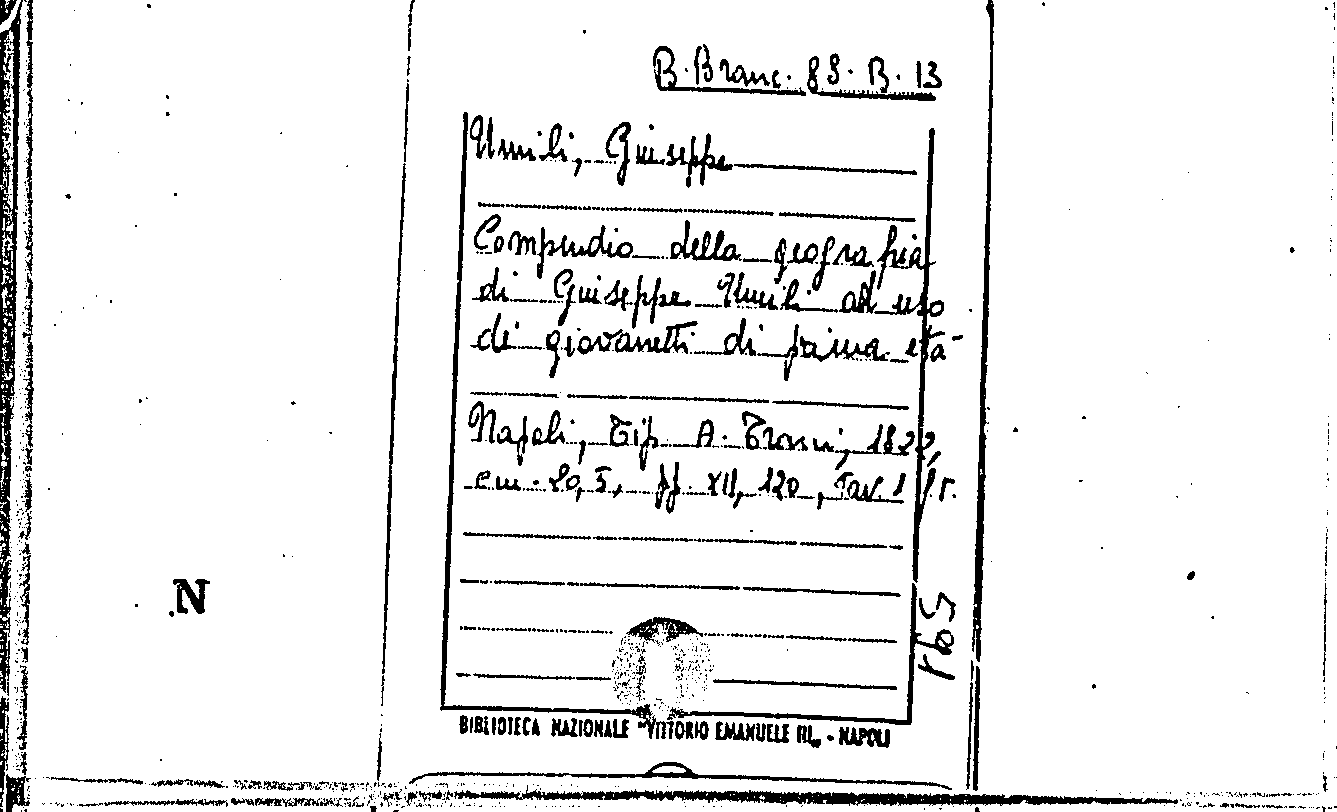 B. Branc. 89. B. 13
Umili, Giuseppe
Compendio della geografia
di Giuseppe Umili ad uso
dei giovanetti di prima età
Napoli, Tip. A. Trani, 1822,
cm. 20,5, pp. XII, 120, Tav. 1 f.t.
N
BIBLIOTECA NAZIONALE "VITTORIO EMANUELE III„ - NAPOLI